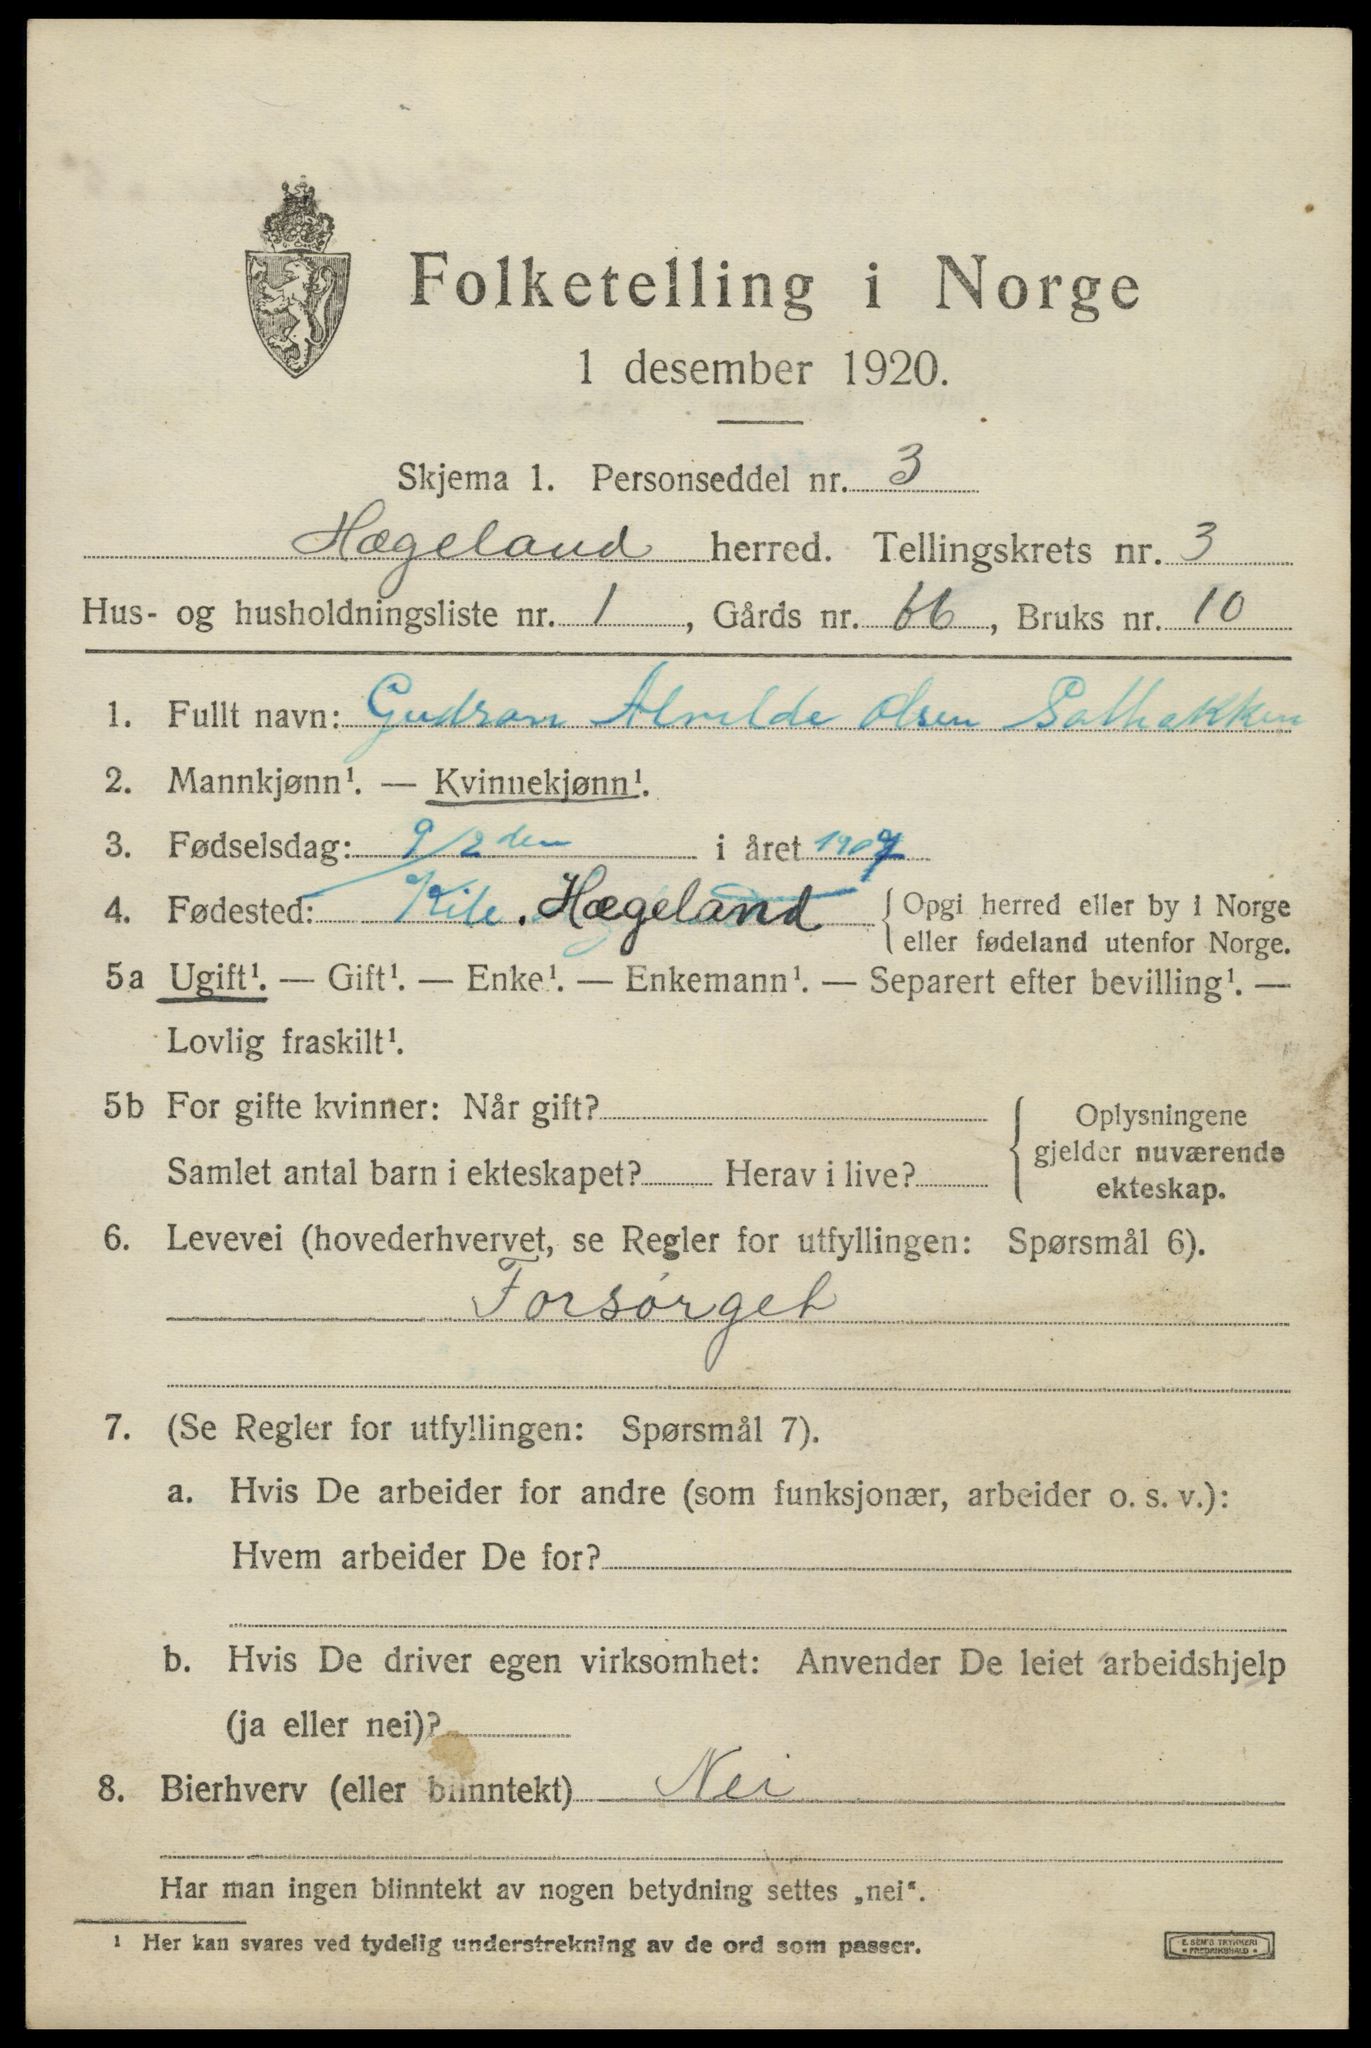 Folketelling i Norge
1 desember 1920.
Skjema 1. Personseddel nr. 3
Hægeland herred. Tellingskrets nr. 3
Hus- og husholdningsliste nr. 1, Gårds nr. 66, Bruks nr. 10
1. Fullt navn: Gudron Alvilde Olsen
2. Mannkjønn¹. — Kvinnekjønn¹.
3. Fødselsdag: 9/2 den i året 1907
4. Fødested: Kile. Hægeland { Opgi herred eller by i Norge
eller fødeland utenfor Norge.
5a Ugift¹. — Gift¹. — Enke¹. — Enkemann¹. — Separert efter bevilling¹. —
Lovlig fraskilt¹.
5b For gifte kvinner: Når gift? { Oplysningene
gjelder nuværende
Samlet antal barn i ekteskapet? Herav i live? ekteskap.
6. Levevei (hovederhvervet, se Regler for utfyllingen: Spørsmål 6).
Forsørget
7. (Se Regler for utfyllingen: Spørsmål 7).
a. Hvis De arbeider for andre (som funksjonær, arbeider o. s. v.):
Hvem arbeider De for?
b. Hvis De driver egen virksomhet: Anvender De leiet arbeidshjelp
(ja eller nei)?
8. Bierhverv (eller biinntekt) Nei
Har man ingen biinntekt av nogen betydning settes „nei“.
¹ Her kan svares ved tydelig understrekning av de ord som passer.
E. SEM'S TRYKKERI
* FREDRIKSHALD *